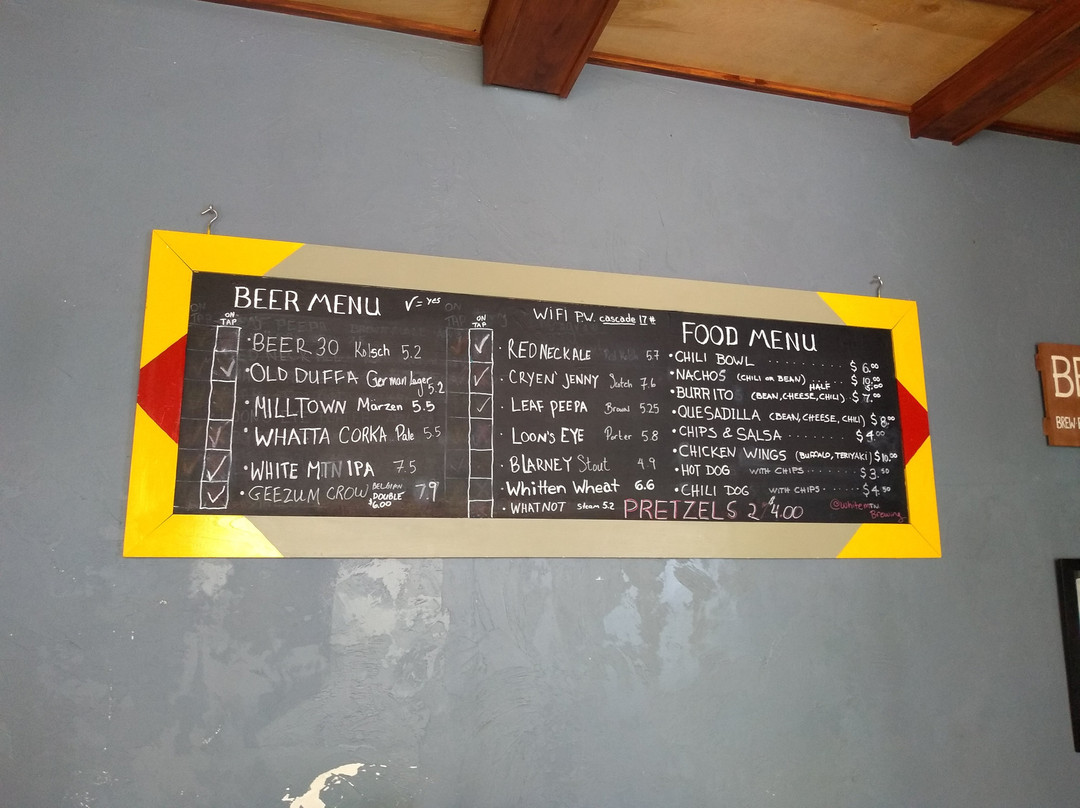 BEER MENU √ = yes
ON TAP
BEER 30 Kolsch 5.2
OLD DUFFA German lager 5.2
MILLTOWN Märzen 5.5
WHATTA CORKA Pale 5.5
WHITE MTN IPA 7.5
GEEZUM CROW BELGIAN DOUBLE $6.00 7.9
WIFI PW. cascade17#
ON TAP
REDNECKALE 5.7
CRYEN' JENNY Scotch 7.6
LEAF PEEPA Brown 5.25
LOON'S EYE Porter 5.8
BLARNEY Stout 4.9
Whitten Wheat 6.6
WHATNOT Steam 5.2
FOOD MENU
CHILI BOWL $6.00
NACHOS (CHILI OR BEAN) $10.00
HALF $5.00
BURRITO (BEAN, CHEESE, CHILI) $7.00
QUESADILLA (BEAN, CHEESE, CHILI) $8.00
CHIPS & SALSA $4.00
CHICKEN WINGS (BUFFALO, TERIYAKI) $10.00
HOT DOG WITH CHIPS $3.50
CHILI DOG WITH CHIPS $4.50
PRETZELS 2 $4.00
@whitemtn Brewing
BE
BREW